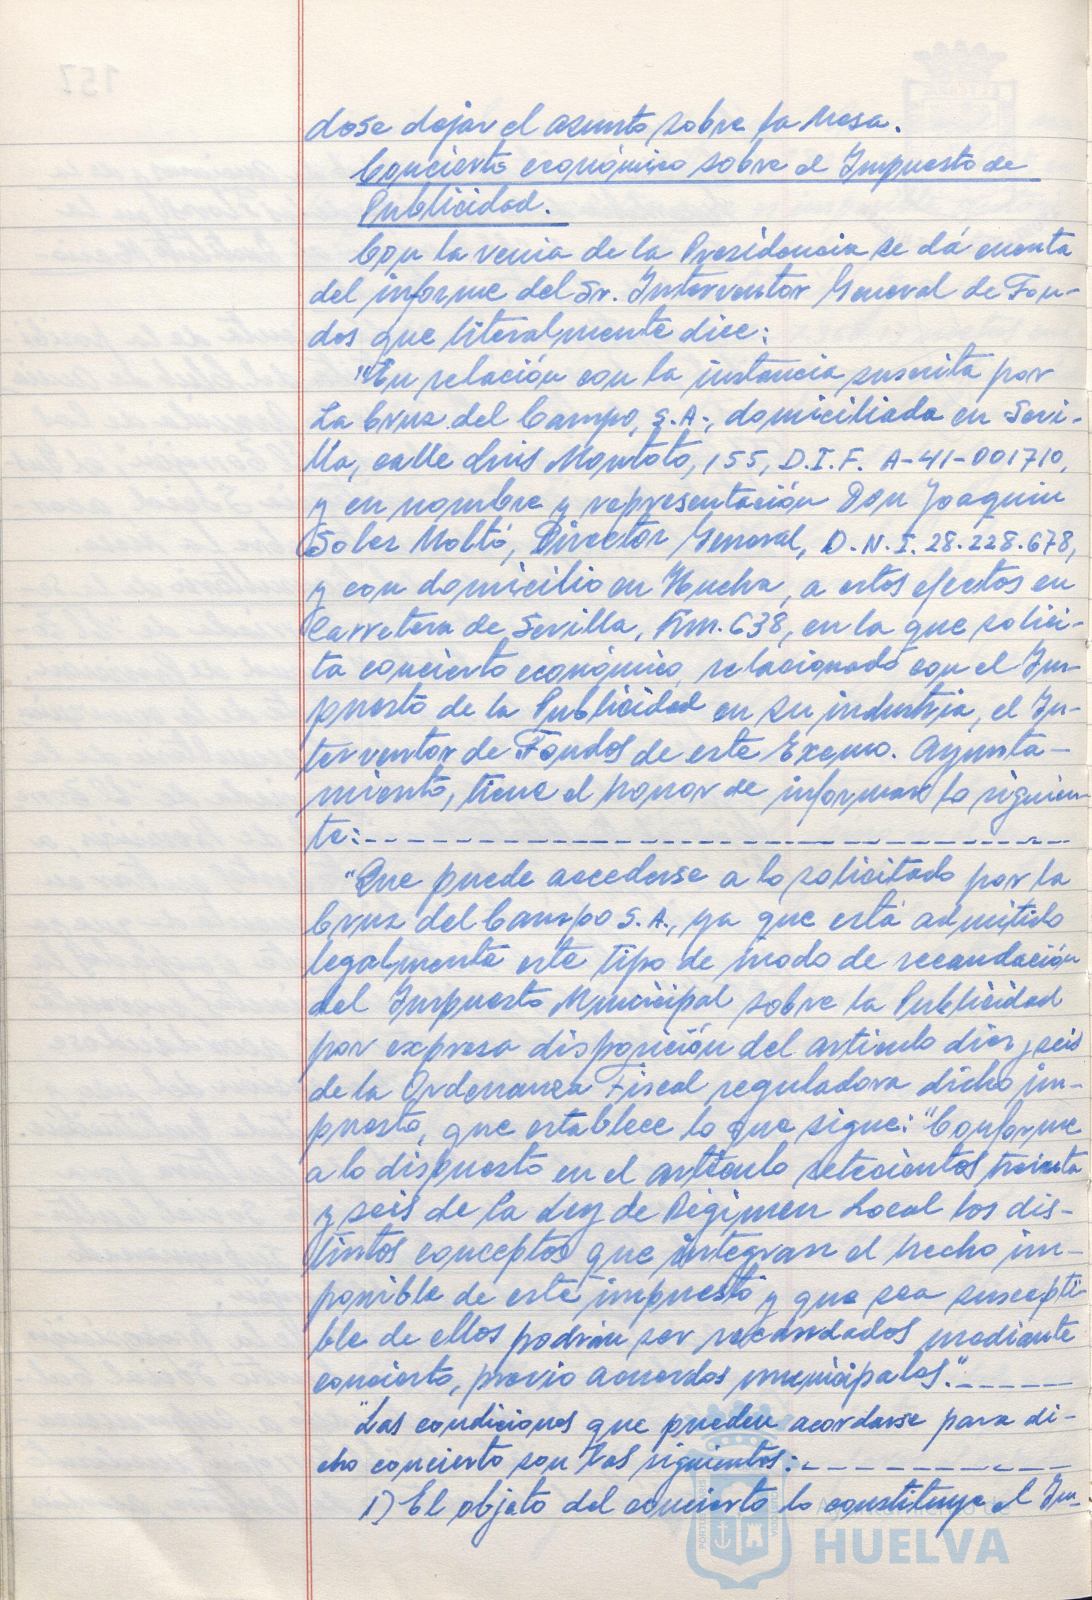 dose dejar el asunto sobre la Mesa.
Concierto económico sobre el Impuesto de
Publicidad.
Con la venia de la Presidencia se dá cuenta
del informe del Sr. Interventor General de Fon-
dos que literalmente dice:
"En relación con la instancia suscrita por
La Cruz del Campo, S.A., domiciliada en Sevi-
lla, calle Luis Montoto, 155, D.I.F. A-41-001710,
y en nombre y representación Don Joaquin
Soler Moltó, Director General, D.N.I. 28.228.678,
y con domicilio en Huelva, a estos efectos en
Carretera de Sevilla, Km. 638, en la que solici-
ta concierto económico, relacionado con el Im-
puesto de la Publicidad en su industria, el In-
terventor de Fondos de este Excmo. Ayunta-
miento, tiene el honor de informar lo siguien-
te:
"Que puede accederse a lo solicitado por la
Cruz del Campo S.A., ya que está admitido
legalmente este tipo de modo de recaudación
del Impuesto Municipal sobre la Publicidad
por expresa disposición del articulo diez y seis
de la Ordenanza Fiscal reguladora dicho im-
puesto, que establece lo que sigue: "Conforme
a lo dispuesto en el articulo setecientos treinta
y seis de la Ley de Régimen Local los dis-
tintos conceptos que integran el hecho im-
ponible de este impuesto y que sea suscepti
ble de ellos podrán ser recaudados mediante
concierto, previo acuerdos municipales."
"Las condiciones que pueden acordarse para di-
cho concierto son las siguientes:
1) El objeto del concierto lo constituye el Im-
Ayuntamiento de
HUELVA